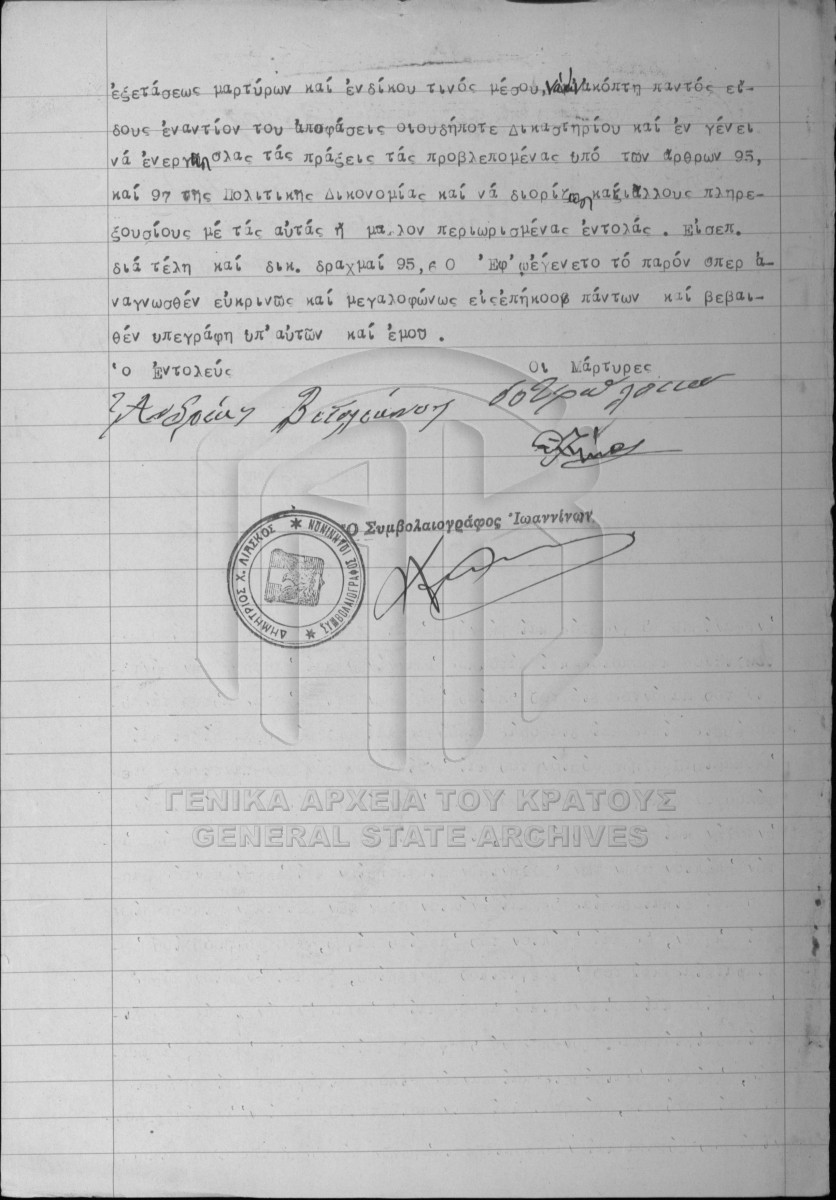 ἐξετάσεως μαρτύρων καί ἐνδίκου τινός μέσου, νά ἀνακόπτη παντός εἴ-
δους ἐναντίον του ἀποφάσεις οιουδήποτε Δικαστηρίου καί ἐν γένει
νά ἐνεργῆ ὅλας τάς πράξεις τάς προβλεπομένας ὑπό τῶν ἄρθρων 95,
καί 97 τῆς Πολιτικῆς Δικονομίας καί νά διορίζῃ καί ἄλλους πληρε-
ξουσίους μέ τάς αὐτάς ἤ μᾶλλον περιωρισμένας ἐντολάς . Εἰσεπ.
διά τέλη καί δικ. δραχμαί 95, Ἐφ'ᾧ ἐγένετο τό παρόν ὅπερ ἀ-
ναγνωσθέν εὐκρινῶς καί μεγαλοφώνως εἰς ἐπήκοον πάντων καί βεβαι-
θέν υπεγράφη ὑπ'αὐτῶν καί ἐμοῦ .
Ὁ Ἐντολεύς Οι Μάρτυρες
Ἀνδρέας
Ὁ Συμβολαιογράφος Ἰωαννίνων
ΔΗΜΗΤΡΙΟΣ Χ. ΛΙΑΣΚΟΣ * ΣΥΜΒΟΛΑΙΟΓΡΑΦΟΣ ΙΩΑΝΝΙΝΩΝ *
ΓΕΝΙΚΑ ΑΡΧΕΙΑ ΤΟΥ ΚΡΑΤΟΥΣ
GENERAL STATE ARCHIVES